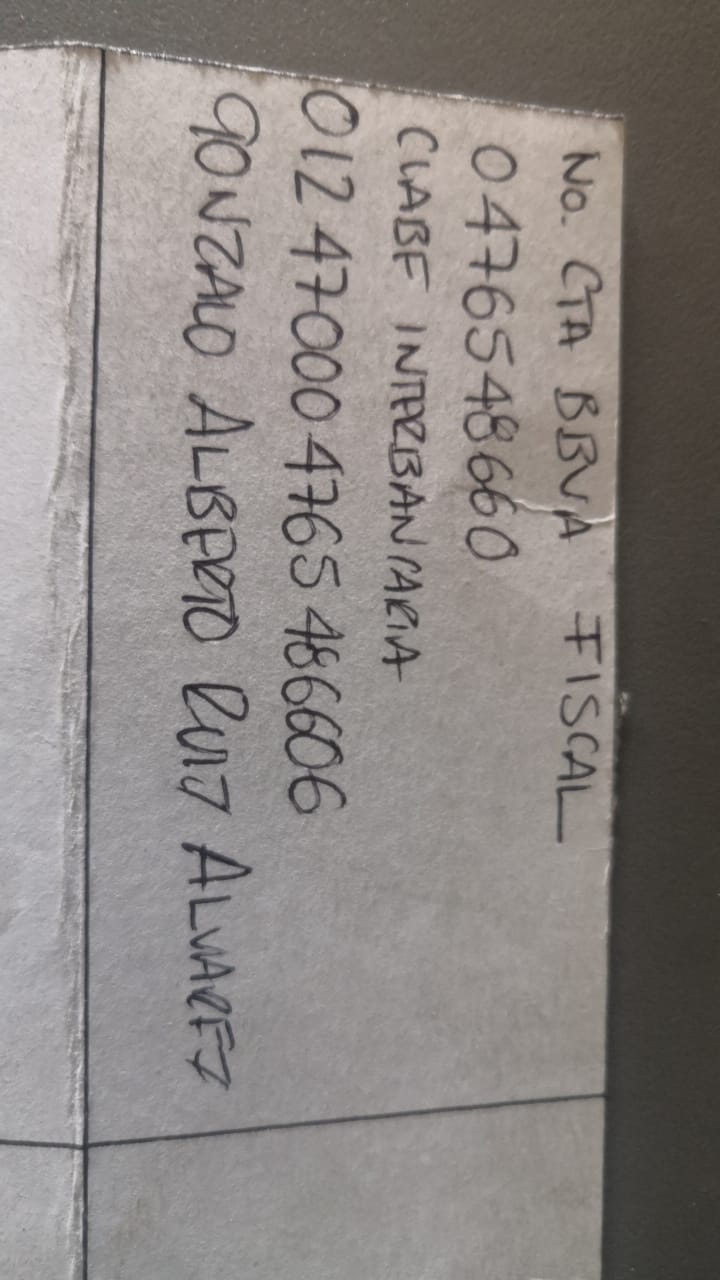 No. CTA BBVA FISCAL
0476548660
CLABE INTERBANCARIA
012 47000 4765 486606
GONZALO ALBERTO RUIZ ALVAREZ